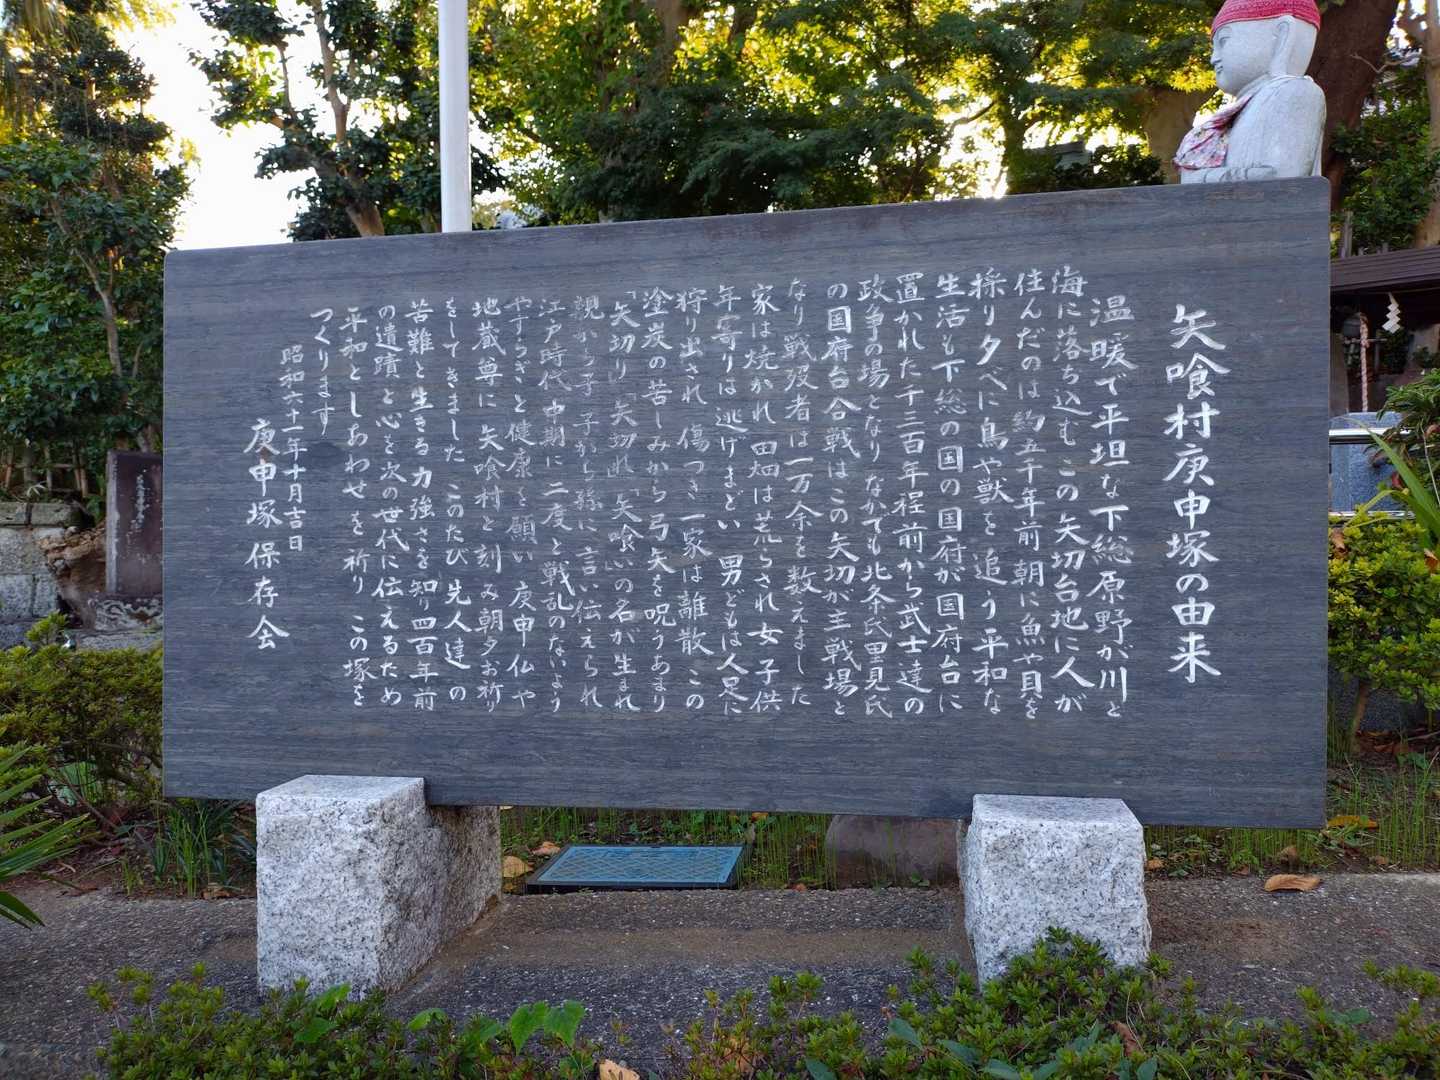 矢喰村庚申塚の由来
温暖で平坦な下総原野が川と
海に落ち込むこの矢切台地に人が
住んだのは約五千年前朝に魚や貝を
採り夕べに鳥や獣を追う平和な
生活も下総の国の国府が国府台に
置かれた千三百年程前から武士達の
政争の場となりなかでも北条氏里見氏
の国府台合戦はこの矢切が主戦場と
なり戦歿者は一万余を数えました
家は焼かれ田畑は荒らされ女子供
年寄りは逃げまどい男どもは人足に
狩り出され傷つき一家は離散この
塗炭の苦しみから弓矢を呪うあまり
「矢切り」「矢切れ」「矢喰い」の名が生まれ
親から子子から孫に言い伝えられ
江戸時代中期に二度と戦乱のないよう
やすらぎと健康を願い庚申仏や
地蔵尊に矢喰村と刻み朝夕お祈り
をしてきましたこのたび先人達の
苦難と生きる力強さを知り四百年前
の遺蹟と心を次の世代に伝えるため
平和としあわせを祈りこの塚を
つくります
昭和六十一年十月吉日
庚申塚保存会